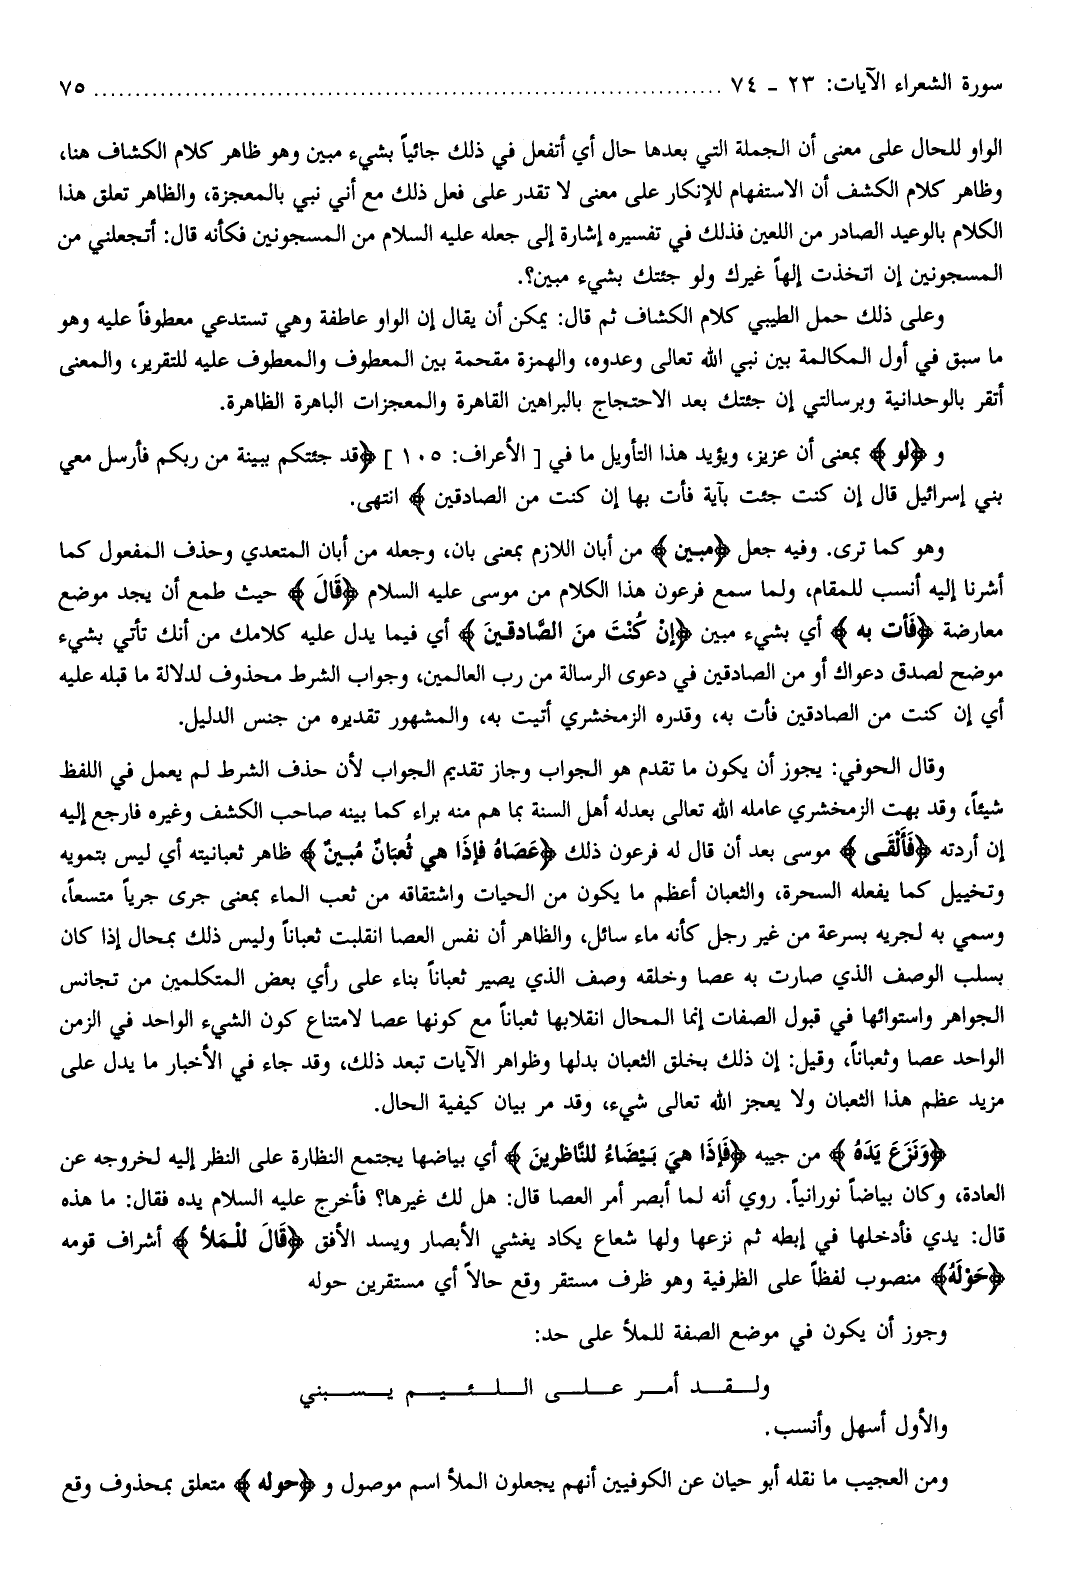 سورة الشعراء الآيات: ٢٣ ـ ٧٤ ........................................................................... ٧٥
الواو للحال على معنى أن الجملة التي بعدها حال أي أتفعل في ذلك جائياً بشيء مبين وهو ظاهر كلام الكشاف هنا،
وظاهر كلام الكشف أن الاستفهام للإنكار على معنى لا تقدر على فعل ذلك مع أني نبي بالمعجزة، والظاهر تعلق هذا
الكلام بالوعيد الصادر من اللعين فذلك في تفسيره إشارة إلى جعله عليه السلام من المسجونين فكأنه قال: أتجعلني من
المسجونين إن اتخذت إلهاً غيرك ولو جئتك بشيء مبين؟.
وعلى ذلك حمل الطيبي كلام الكشاف ثم قال: يمكن أن يقال إن الواو عاطفة وهي تستدعي معطوفاً عليه وهو
ما سبق في أول المكالمة بين نبي الله تعالى وعدوه، والهمزة مقحمة بين المعطوف والمعطوف عليه للتقرير، والمعنى
أتقر بالوحدانية وبرسالتي إن جئتك بعد الاحتجاج بالبراهين القاهرة والمعجزات الباهرة الظاهرة.
و ﴿لو ﴾ بمعنى أن عزيز، ويؤيد هذا التأويل ما في [ الأعراف: ١٠٥ ] ﴿قد جئتكم ببينة من ربكم فأرسل معي
بني إسرائيل قال إن كنت جئت بآية فأت بها إن كنت من الصادقين ﴾ انتهى.
وهو كما ترى. وفيه جعل ﴿مبين ﴾ من أبان اللازم بمعنى بان، وجعله من أبان المتعدي وحذف المفعول كما
أشرنا إليه أنسب للمقام، ولما سمع فرعون هذا الكلام من موسى عليه السلام ﴿قَالَ ﴾ حيث طمع أن يجد موضع
معارضة ﴿فَأت به ﴾ أي بشيء مبين ﴿إنْ كُنْتَ منَ الصَّادقينَ ﴾ أي فيما يدل عليه كلامك من أنك تأتي بشيء
موضح لصدق دعواك أو من الصادقين في دعوى الرسالة من رب العالمين، وجواب الشرط محذوف لدلالة ما قبله عليه
أي إن كنت من الصادقين فأت به، وقدره الزمخشري أتيت به، والمشهور تقديره من جنس الدليل.
وقال الحوفي: يجوز أن يكون ما تقدم هو الجواب وجاز تقديم الجواب لأن حذف الشرط لم يعمل في اللفظ
شيئاً، وقد بهت الزمخشري عامله الله تعالى بعدله أهل السنة بما هم منه براء كما بينه صاحب الكشف وغيره فارجع إليه
إن أردته ﴿فَأَلْقَى ﴾ موسى بعد أن قال له فرعون ذلك ﴿عَصَاهُ فإذَا هي ثُعبَانٌ مُبينٌ ﴾ ظاهر ثعبانيته أي ليس بتمويه
وتخييل كما يفعله السحرة، والثعبان أعظم ما يكون من الحيات واشتقاقه من ثعب الماء بمعنى جرى جرياً متسعاً،
وسمي به لجريه بسرعة من غير رجل كأنه ماء سائل، والظاهر أن نفس العصا انقلبت ثعباناً وليس ذلك بمحال إذا كان
بسلب الوصف الذي صارت به عصا وخلقه وصف الذي يصير ثعباناً بناء على رأي بعض المتكلمين من تجانس
الجواهر واستوائها في قبول الصفات إنما المحال انقلابها ثعباناً مع كونها عصا لامتناع كون الشيء الواحد في الزمن
الواحد عصا وثعباناً، وقيل: إن ذلك بخلق الثعبان بدلها وظواهر الآيات تبعد ذلك، وقد جاء في الأخبار ما يدل على
مزيد عظم هذا الثعبان ولا يعجز الله تعالى شيء، وقد مر بيان كيفية الحال.
﴿وَنَزَعَ يَدَهُ ﴾ من جيبه ﴿فَإذَا هيَ بَيْضَاءُ للنَّاظرينَ ﴾ أي بياضها يجتمع النظارة على النظر إليه لخروجه عن
العادة، وكان بياضاً نورانياً. روي أنه لما أبصر أمر العصا قال: هل لك غيرها؟ فأخرج عليه السلام يده فقال: ما هذه
قال: يدي فأدخلها في إبطه ثم نزعها ولها شعاع يكاد يغشي الأبصار ويسد الأفق ﴿قَالَ للْملأ ﴾ أشراف قومه
﴿حَوْلَهُ﴾ منصوب لفظاً على الظرفية وهو ظرف مستقر وقع حالاً أي مستقرين حوله
وجوز أن يكون في موضع الصفة للملأ على حد:
ولقد أمر على اللئيم يسبني
والأول أسهل وأنسب.
ومن العجيب ما نقله أبو حيان عن الكوفيين أنهم يجعلون الملأ اسم موصول و ﴿حوله ﴾ متعلق بمحذوف وقع